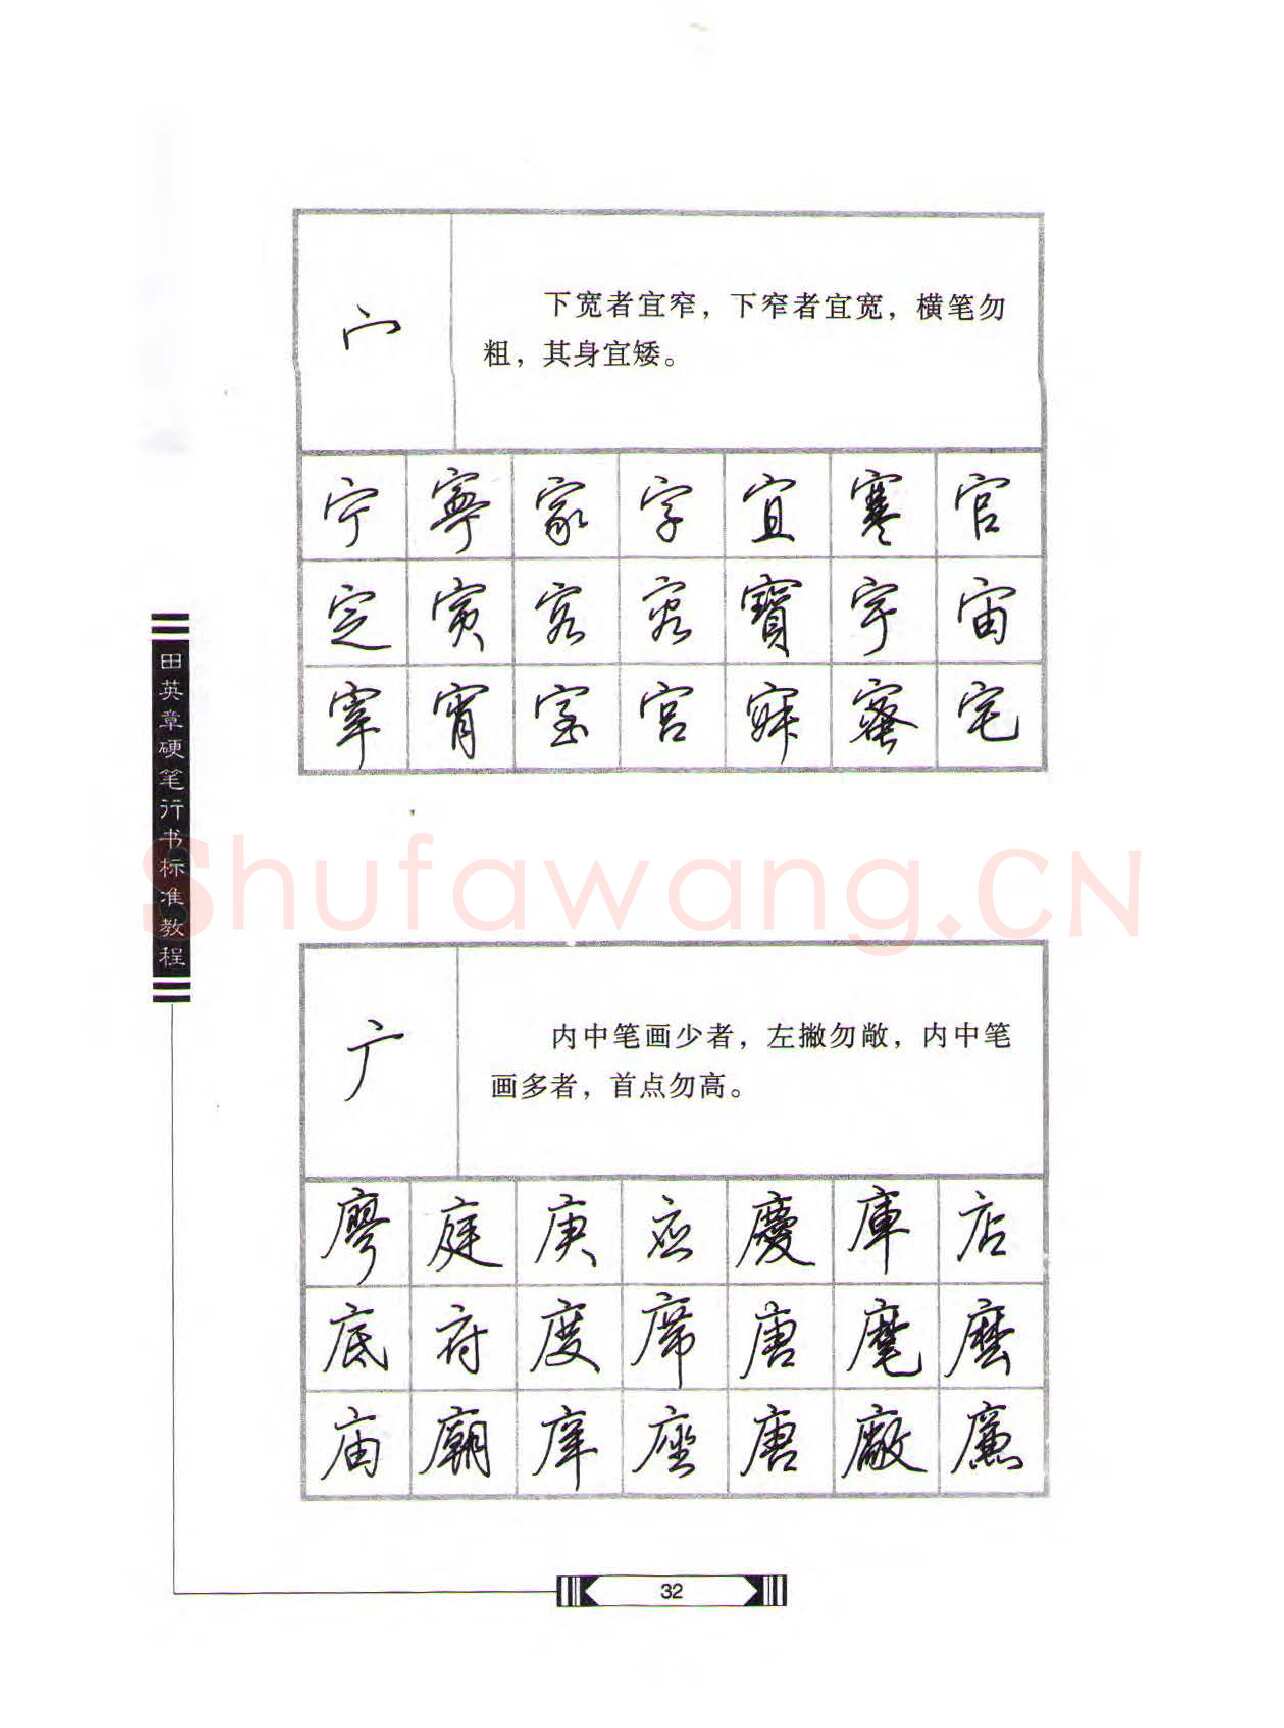 宀
下宽者宜窄，下窄者宜宽，横笔勿
粗，其身宜矮。
宁 寧 家 字 宜 寒 官
定 寅 客 容 寶 宇 宙
宰 宵 宝 宫 寐 蜜 宅
田英章硬笔行书标准教程
Shufawang.CN
广
内中笔画少者，左撇勿敞，内中笔
画多者，首点勿高。
廖 庭 庚 应 慶 庫 店
底 府 度 席 唐 麾 磨
庙 廟 庠 座 唐 廠 廉
32